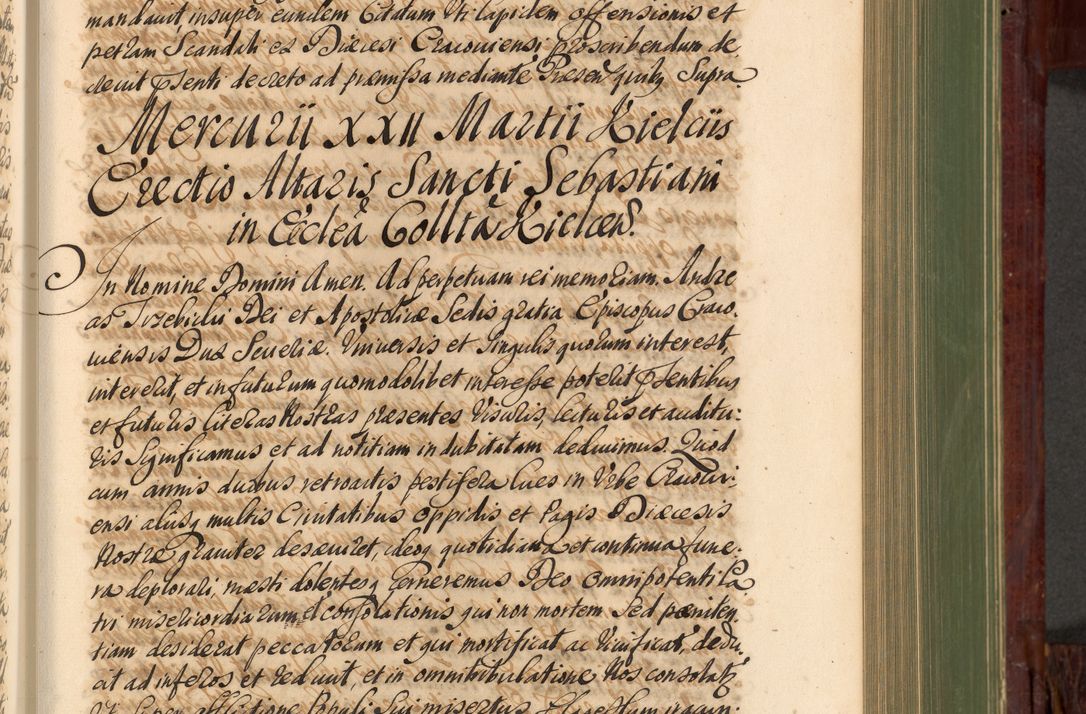 mandavit, insuper eundem Citatum Uti lapidem offensionis et
petram Scandali ex Diæcesi Cracoviensi proscribendum de
crevit pśenti decreto ad præmissa mediante Præsen quibq Supra
Mercurii XXII Martii Kielciis
Erectio Altaris Sancti Sebastiani
in Ecclẽa Collta Kielcen.
In Nomine Domini Amen. Ad perpetuam rei memoriam. Andre
as Trzebicki Dei et Apostolicæ Sedis gratia Episcopus Craco
uiensis Dux Seueriæ. Vniuersis et Singulis quorum interest,
intererit, et in futurum quomodolibet interesse poterit pśentibus
et futuris Literas Nostras præsentes Visuris, lecturis et auditu:
ris Significamus et ad notitiam indubitatam deducimus. Quod
cum annis duobus retroactis pestifera lues in Vrbe Cracoui:
ensi alijsq multis Ciuitatibus oppidis et Pagis Diæcesis
Nostræ grauiter desæuiret, ideoq quotidiana et continua fune:
ra deplorari, mæsti dolentesq cerneremus Deo omnipotenti Pa
tri misericordiarum, et consolationis qui non mortem Sed pæniten
tiam desiderat peccatorum et qui mortificat ac Viuificat, dedu
cit ad inferos et reducit, et in omni tribulatione Nos consolatq
Populi Sui misertus